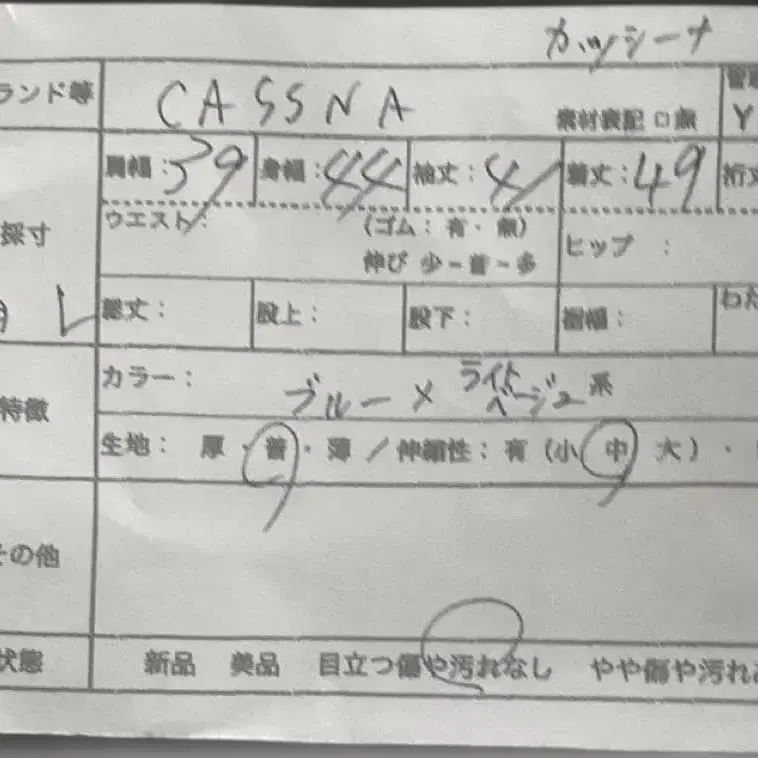 カッシーナ
ランド等 CASSNA 素材表記 ロ無 Y
肩幅：39 身幅：44 袖丈：41 着丈：49 裄丈
採寸 ウエスト： (ゴム：有・無) ヒップ ：
伸び 少－普－多
L 総丈： 股上： 股下： 裾幅： わた
特徴 カラー： ブルー×ライトベージュ系
生地： 厚・普・薄／伸縮性：有 (小 中 大)・
その他
状態 新品 美品 目立つ傷や汚れなし やや傷や汚れ